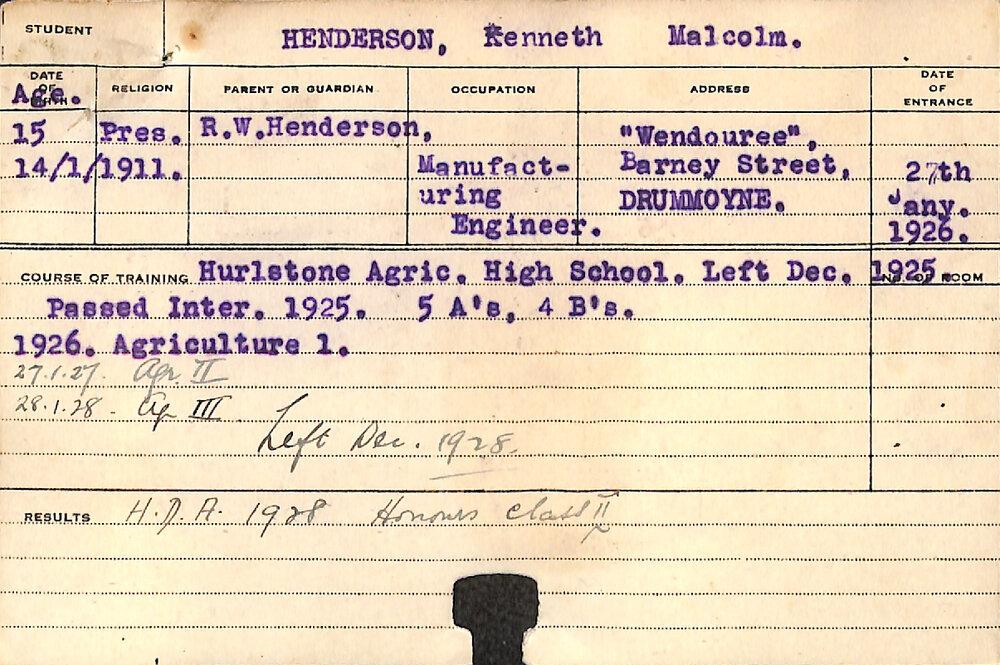 STUDENT HENDERSON, Kenneth Malcolm.
DATE OF BIRTH RELIGION PARENT OR GUARDIAN OCCUPATION ADDRESS DATE OF ENTRANCE
Age.
15 Pres. R.W.Henderson, "Wendouree",
14/1/1911. Manufact- Barney Street, 27th
uring DRUMMOYNE. Jany.
Engineer. 1926.
COURSE OF TRAINING Hurlstone Agric. High School. Left Dec. 1925 ROOM
Passed Inter. 1925. 5 A's, 4 B's.
1926. Agriculture 1.
27.1.27. Agr. II
28.1.28 - Ag III
Left Dec. 1928.
RESULTS H.D.A. 1928 Honours Class II